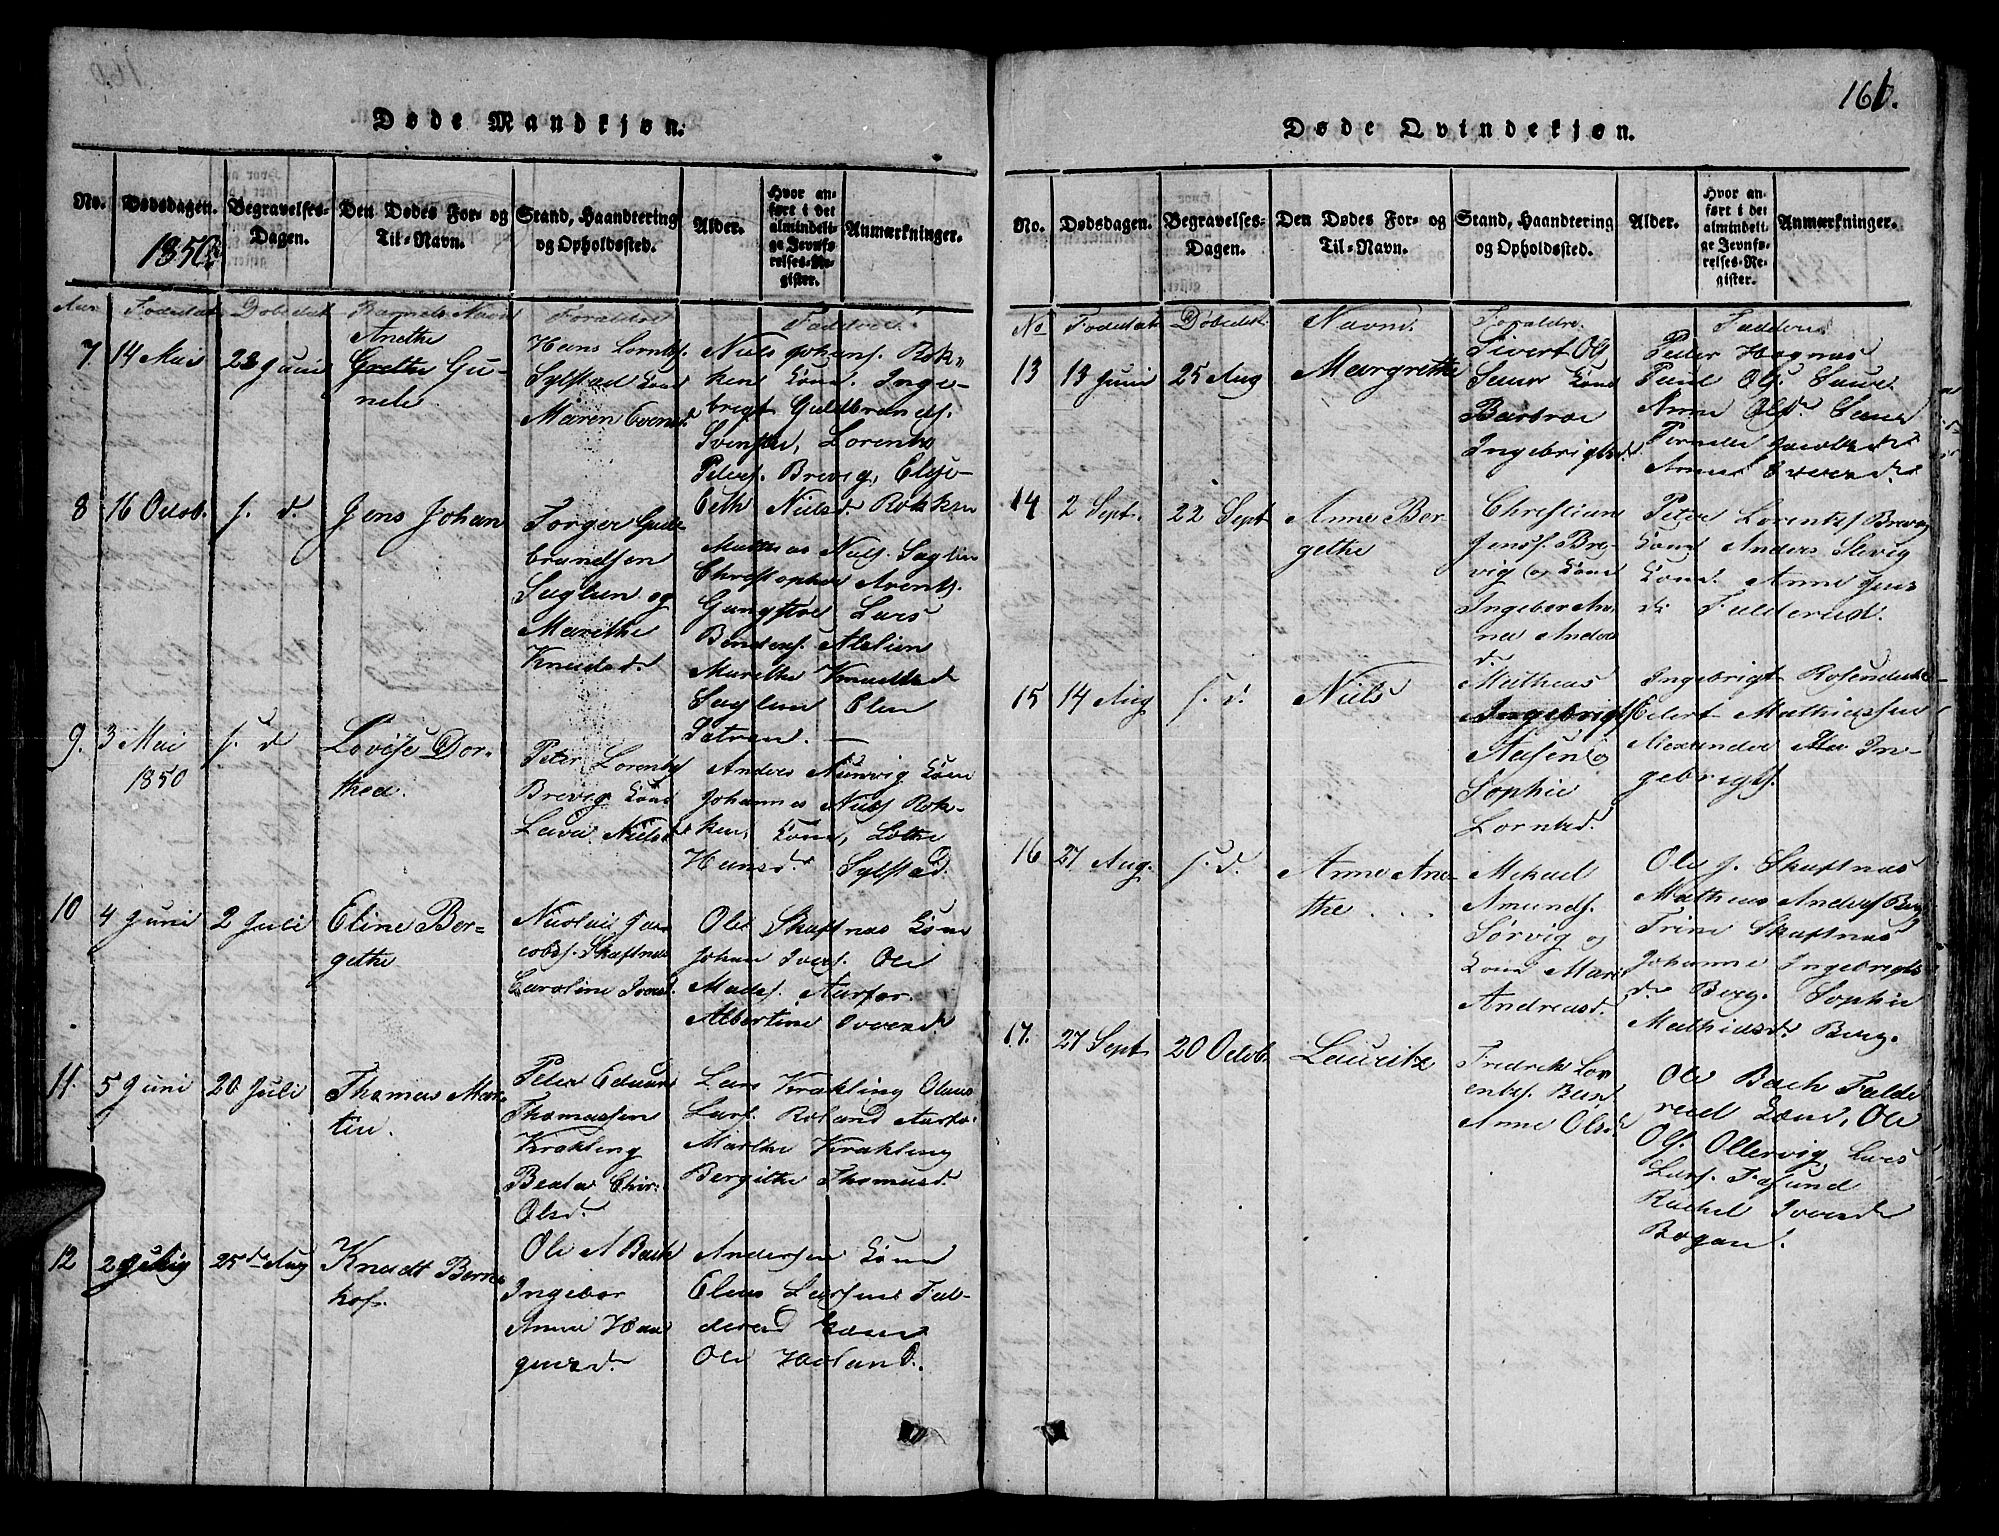 Døde Mandkjøn.
No.
Dødsdagen.
Begravelses-
Dagen.
Den Dødes For- og
Til-Navn.
Stand, Haandtering
og Opholdssted.
Alder.
Hvor an-
ført i det
almindeli-
ge Jevnfø-
relses-Re-
gister.
Anmærkninger.
1850
Fødedat
Døbedat
Barnets Navn
Forældre
Faddere
7.
14 Mai
23 Juni
Anethe
Grethe Gu-
nele.
Hans Lorntz.
Sylstad Kone
Maren Evensd.
Niels Johans. Rok-
ken Kone. Inge-
brigt Guldbrands.
Lorentz
Peters. Brevig, Elise-
beth Nielsd. Rokken
8
16 Octob.
s. d.
Jens Johan
Torger Guld
brandsen
Saglien og
Marethe
Knudsd.
Mathias Niels. Saglien
Christopher
Lars
Marethe Knudsd
Saglien Elen
Sætren.
9.
3 Mai
1850
s. d
Lovise Dor-
thea.
Peter Lorentz
Brevig Kone
Nielsd
Anders Kone
Johannes Niels Rok-
ken, Kone, Lothe
Hansdr Sylstad.
10
4 Juni
2 Juli
Eline Ber-
gethe
Nicolai Ja-
cobs. Skaftnæs
Caroline Iversd.
Ole Skaftnæs Kone
Johan Ivers. Ole
Mads. Aarfor.
Albertine Iversd
11.
5 Juni
20 Juli
Thomas Mar-
tin.
Peter Eduard
Thomassen
Krækling
Olsd.
Lars Krækling Olaus
Lars. Roland
Marthe Krækling
Bergithe Thomasd.
12
25de Aug
Knudt Bern-
hof.
Ole A Bach
Ingebor
Anna Haa
gensd.
Andersen Kone
Elias Larsens Fal-
dered Kone
Ole Hovland.
161.
Døde Qvindekjøn.
No.
Dødsdagen.
Begravelses-
Dagen.
Den Dødes For- og
Til-Navn.
Stand, Haandtering
og Opholdssted.
Alder.
Hvor an-
ført i det
almindeli-
ge Jevnfø-
relses-Re-
gister.
Anmærkninger.
No
Fødedat
Døbedat
Navn.
Forældre.
Faddere
13
13 Juni
25 Aug
Margrethe
Sivert Ols
Saur Kone
Barbroe
Ingebrigtsd.
Peder Hagnæs
Paul Ols. Saure
Anne Olsdr Saur
Pernele Jacobsdr
Anne Iversd.
14
2 Sept.
22 Sept
Anne Ber
gethe
Christian
Jenss. Bre-
vig og Kone
Ingebor An-
na Anders
d.
Peter Lorentzs Brevig
Kone Anders Slevig
Kone. Anne Jens
dr Faldered.
15
14 Aug
s. d.
Niels
Mathias
Ingebrigts
Aasen og
Sophie
Lorntzd.
Ingebrigt
Eilert Mathiassen
Alexander In-
gebrigts.
16
27 Aug.
s. d.
Anne Ane-
the . . .
Mikael
Amunds.
Sørvig og
Kone Mari
Andreasd.
Ole J. Skaftnæs
Mathias Anders Berg
Trine Skaftnæs
Johanne Ingebrigts
dr Berg. Sophie
Mathiasd. Berg.
17.
27 Sept
20 Octob.
Lauritz
Fredrik Lor
entzs.
Anne Olsd.
Ole Bach Falde
reid Kone, Ole
Ols. Ollervig Lars
Lars. Fosund
Rachel Iversd
Rogan.